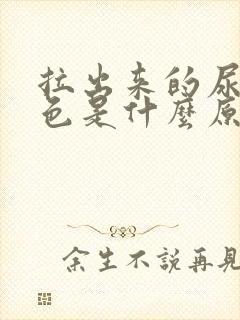 拉出来的尿
色是什麼原
余生不說再見